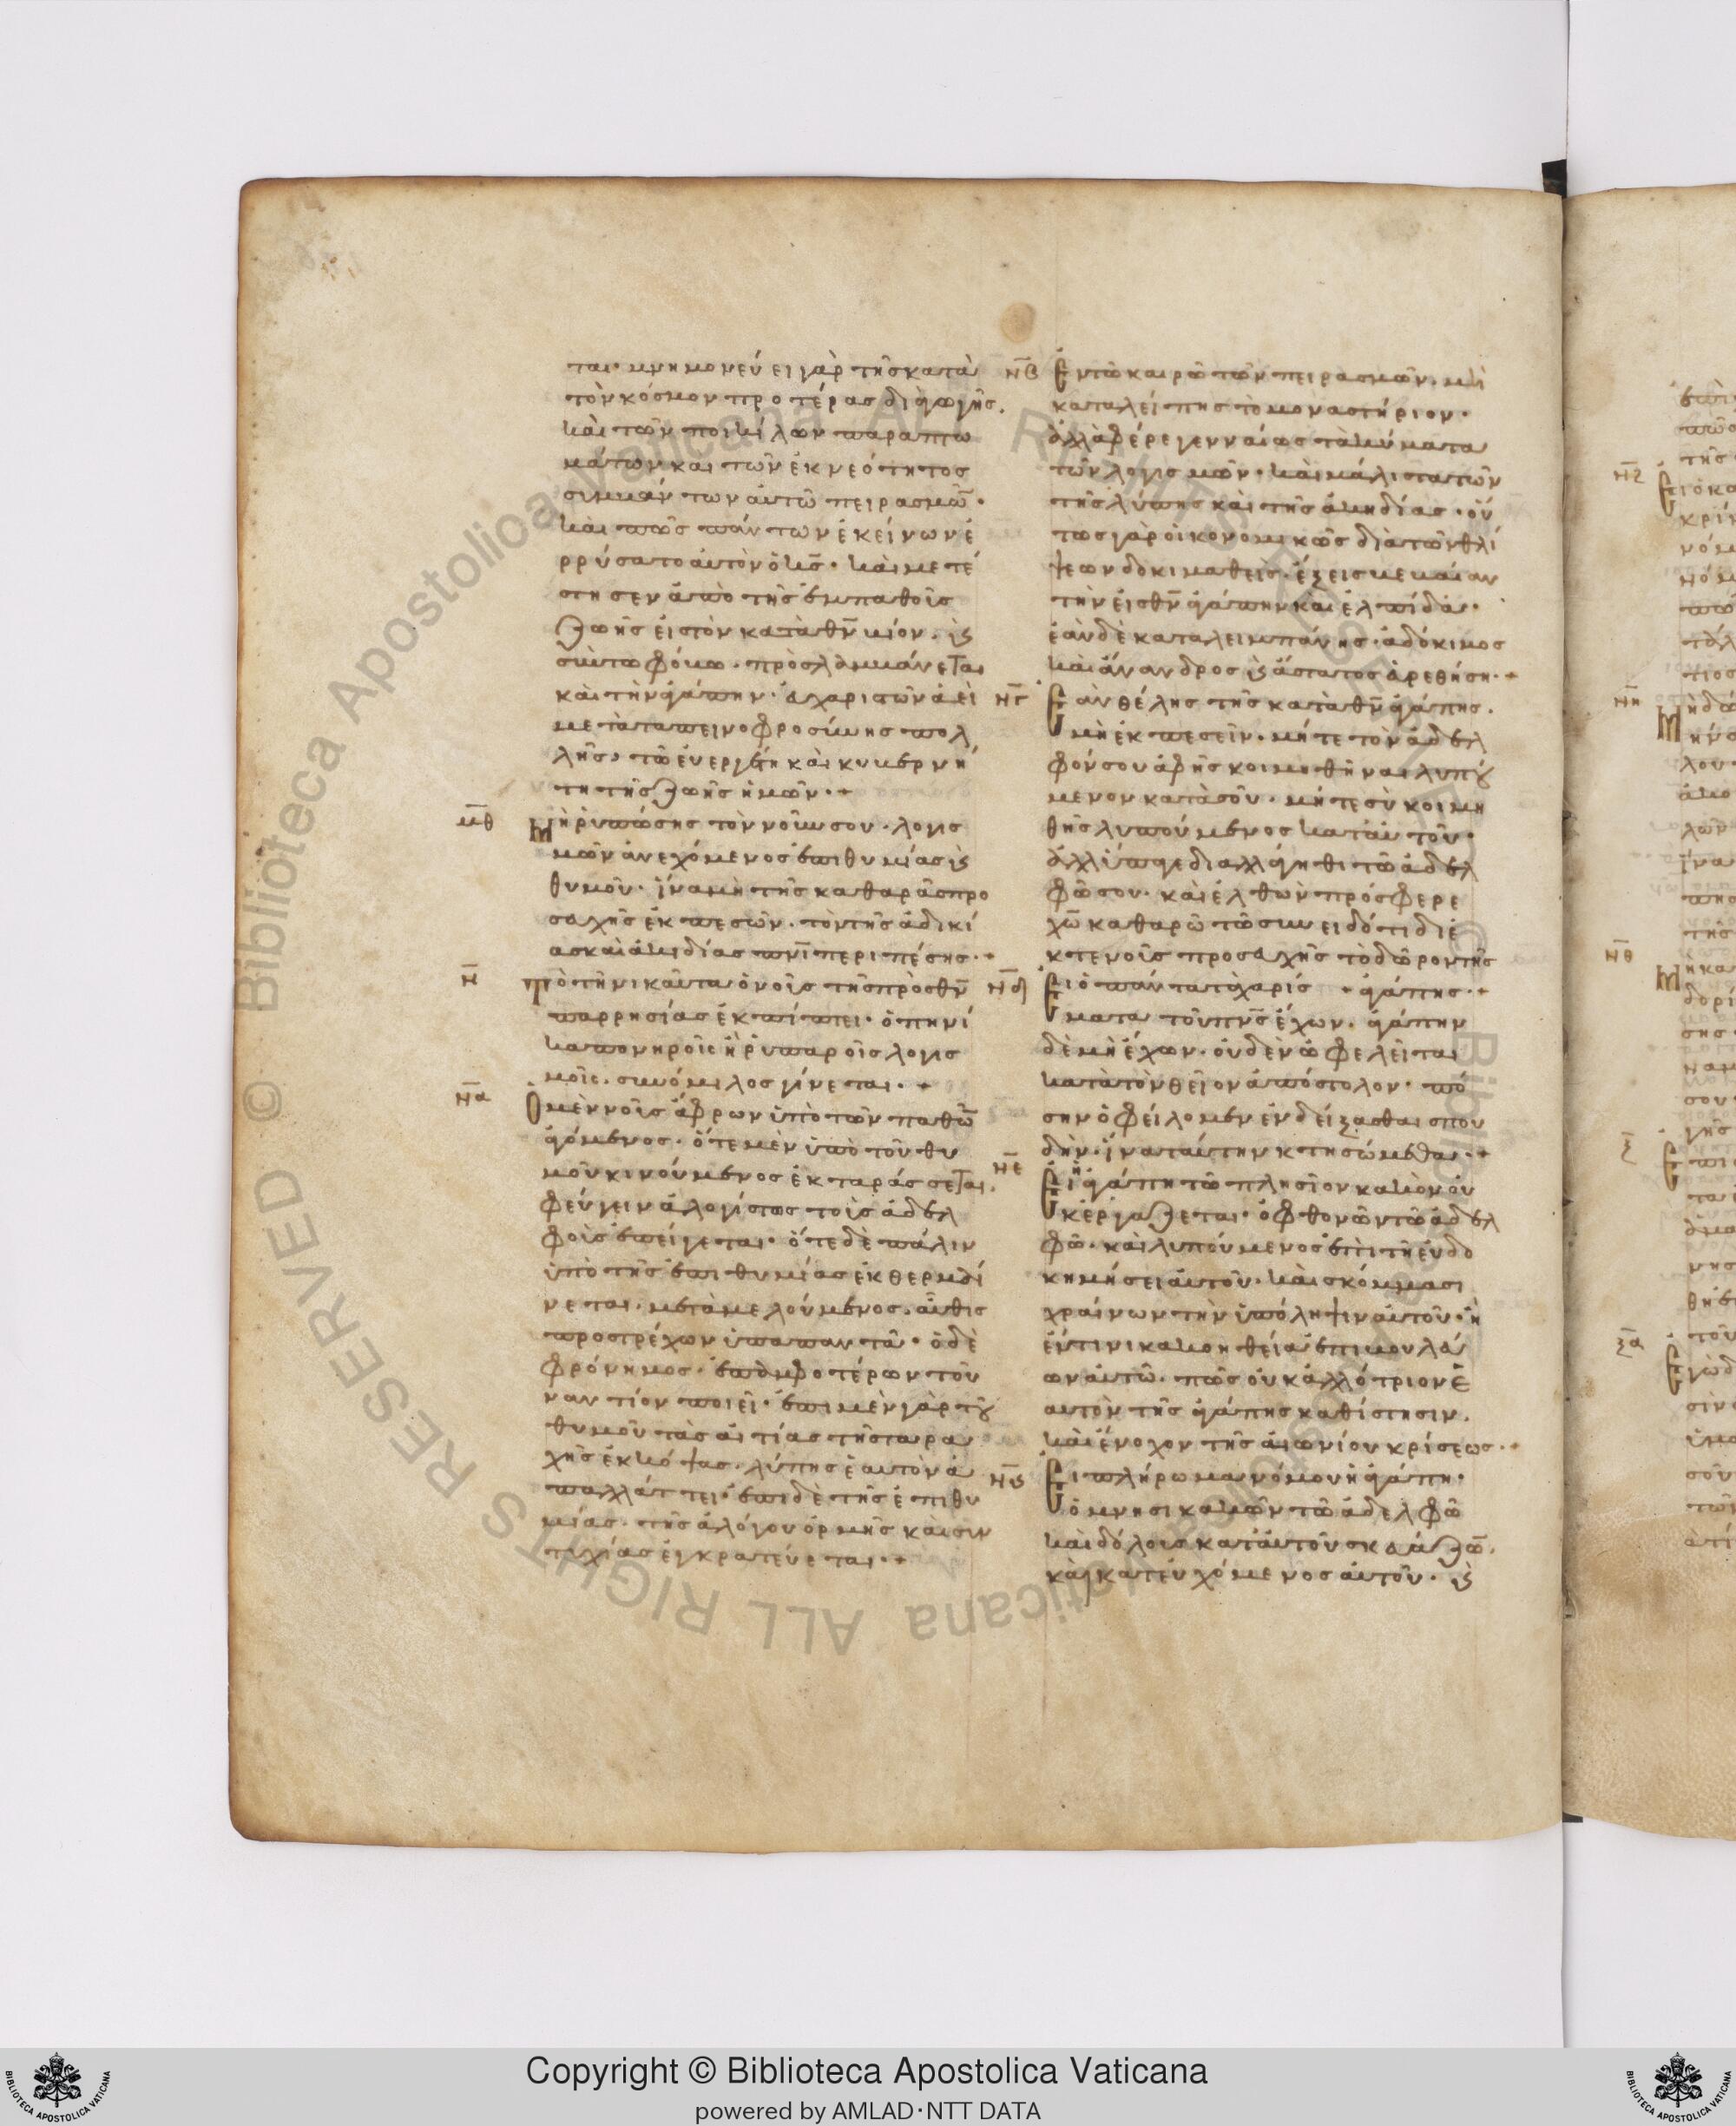 ται· μνημονεύει γὰρ τῆς κατὰ
τὸν κόσμον προτέρας διαγωγῆς.
καὶ τῶν ποικίλων παραπτω
μάτων καὶ τῶν ἐκ νεότητος
συμβάντων αὐτῶ πειρασμῶ̅·
καὶ πῶς πάντων ἐκείνων ἐ
ρρύσατο αὐτὸν ὁ κ̅ς̅· καὶ μετέ
στησεν ἀπὸ τῆς ἐμπαθοῦς
ζωῆς εἰς τὸν κατὰ θ̅ν̅ βίον. ϗ
σὺν τῶ φόβω. προσλαμβάνεται
καὶ τὴν ἀγάπην. εὐχαριστῶν ἀεὶ
μετὰ ταπεινοφροσύνης πολ
λῆς, τῶ εὐεργέτη καὶ κυβερνή
τη τῆς ζωῆς ἡμῶν·+
μ̅θ̅ Μὴ ῥυπώσης τὸν νοῦν σου. λογισ
μῶν ἀνεχόμενος ἐπιθυμίας ϗ
θυμοῦ· ἵνα μὴ τῆς καθαρᾶς προ
σευχῆς ἐκπεσῶν. τὸν τῆς ἀδικί
ας καὶ ἀκηδίας πν̅ι̅ περιπέσης·+
ν̅ Τὸ τηνικαῦτα ὁ νοῦς τῆς πρὸς θ̅ν̅
παρρησίας ἐκπίπτει· ὁπηνί
κα πονηροῖς ἢ ῥυπαροῖς λογισ
μοῖς. συνόμιλος γίνεται·+
ν̅α̅ Ὁ μὲν νοῦς ἄφρων ὑπὸ τῶν παθῶ̅
ἀγόμενος· ὅτε μὲν ὑπὸ τοῦ θυ
μοῦ κινούμενος ἐκταράσσεται.
φεύγειν ἀλογίστως τοὺς ἀδελ
φοὺς ἐπείγεται· ὅτε δὲ πάλιν
ὑπὸ τῆς ἐπιθυμίας ἐκθερμαί
νεται. μεταμελούμενος. αὖθις
προστρέχων ὑπαπαντᾶ· ὁ δὲ
φρόνημος. ἐπ' ἀμφοτέρων τοὐ
ναντίον ποιεῖ· ἐπὶ μὲν γὰρ τοῦ
θυμοῦ τὰς αἰτίας τῆς ταρα
χῆς ἐκκόψας. λύπης ἑαυτὸν ἀ
παλλάττει· ἐπὶ δὲ τῆς ἐπιθυ
μίας. τῆς ἀλόγου ὁρμῆς καὶ συν
τυχίας ἐγκρατεύεται·+
ν̅β̅ Ἐν τῶ καιρῶ τῶν πειρασμῶν. μὴ
καταλείπης τὸ μοναστήριον·
ἀλλὰ φέρε γενναίως τὰ κύματα
τῶν λογισμῶν· καὶ μάλιστα τῶν
τῆς λύπης καὶ τῆς ἀκηδίας· οὕ
τως γὰρ οἰκονομικῶς διὰ τῶν θλί
ψεων δοκιμαθεὶς. ἕξεις βεβαίαν
τὴν εἰς θ̅ν̅ ἀγάπην καὶ ἐλπίδα·
ἐὰν δὲ καταλειμπάνης. ἀδόκιμος
καὶ ἄνανδρος ϗ ἄστατος εὑρεθήση·+
ν̅γ̅ Ἐὰν θέλης τῆς κατὰ θ̅ν̅ ἀγάπης.
μὴ ἐκπεσεῖν. μήτε τὸν ἀδελ
φόν σου ἀφῆς κοιμηθῆναι λυπού
μενον κατὰ σοῦ. μήτε σὺ κοιμη
θῆς λυπούμενος κατ' αὐτοῦ·
ἀλλ' ὕπαγε διαλλάγηθι τῶ ἀδελ
φῶ σου· καὶ ἐλθὼν πρόσφερε
χ̅ω̅ καθαρῶ τῶ συνειδότι δι' ἐ
κτενοῦς προσευχῆς τὸ δῶρον τῆς
ἀγάπης·+
ν̅δ̅ Εἰ ὁ πάντα τὰ χαρίς
ματα τοῦ π̅ν̅ς̅ ἔχων. ἀγάπην
δὲ μὴ ἔχων. οὐδὲν ὠφελεῖται
κατὰ τὸν θεῖον ἀπόστολον· πό
σην ὀφείλομεν ἐνδείξασθαι σπου
δὴν. ἵνα ταύτην κτησώμεθα·+
ν̅ε̅ Εἰ ἡ ἀγάπη τῶ πλησίον κακὸν οὐ
κ ἐργάζεται· ὁ φθονῶν τῶ ἀδελ
φῶ. καὶ λυπούμενος ἐπὶ τῆ εὐδο
κημήσει αὐτοῦ· καὶ σκόμμασι
χραίνων τὴν ὑπόληψιν αὐτοῦ· ἢ
ἔν τινι κακοηθεία ἐπιβουλεύ
ων αὐτῶ. πῶς οὐκ ἀλλότριον ἑ
αυτὸν τῆς ἀγάπης καθίστησιν.
καὶ ἔνοχον τῆς αἰωνίου κρίσεως·+
ν̅ϛ̅ Εἰ πλήρωμα νόμου ἡ ἀγάπη·
ὁ μνησικακῶν τῶ ἀδελφῶ
καὶ δόλους κατ' αὐτοῦ σκευάζω̅.
καὶ κατευχόμενος αὐτοῦ. ϗ
Copyright © Biblioteca Apostolica Vaticana
powered by AMLAD·NTT DATA